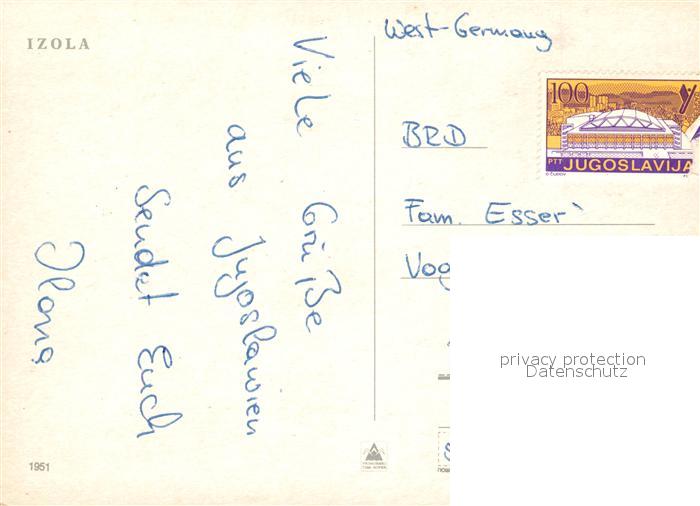 IZOLA
Viele Grüße
aus Jugoslawien
Sendet Euch
Ilona
1951
West-Germany
100
PTT JUGOSLAVIJA
BRD
Fam. Esser
Vog
privacy protection
Datenschutz